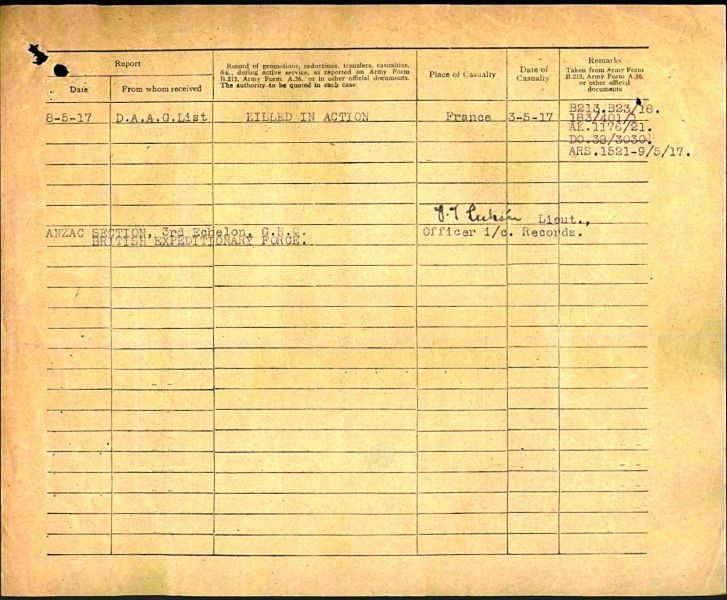 Report
Date
From whom received
Record of promotions, reductions, transfers, casualties,
&c., during active service, as reported on Army Form
B.213, Army Form A.36, or in other official documents.
The authority to be quoted in each case.
Place of Casualty
Date of
Casualty
Remarks
Taken from Army Form
B.213, Army Form A.36,
or other official
documents
8-5-17 D.A.A.G.List KILLED IN ACTION France 3-5-17 B213.B23/18.
183/401/1.
AK.1176/21.
DO.38/3030.
ARS.1521-9/5/17.
Lieut.,
ANZAC SECTION, 3rd Echelon, G.H.Q. Officer i/c. Records.
BRITISH EXPEDITIONARY FORCE.